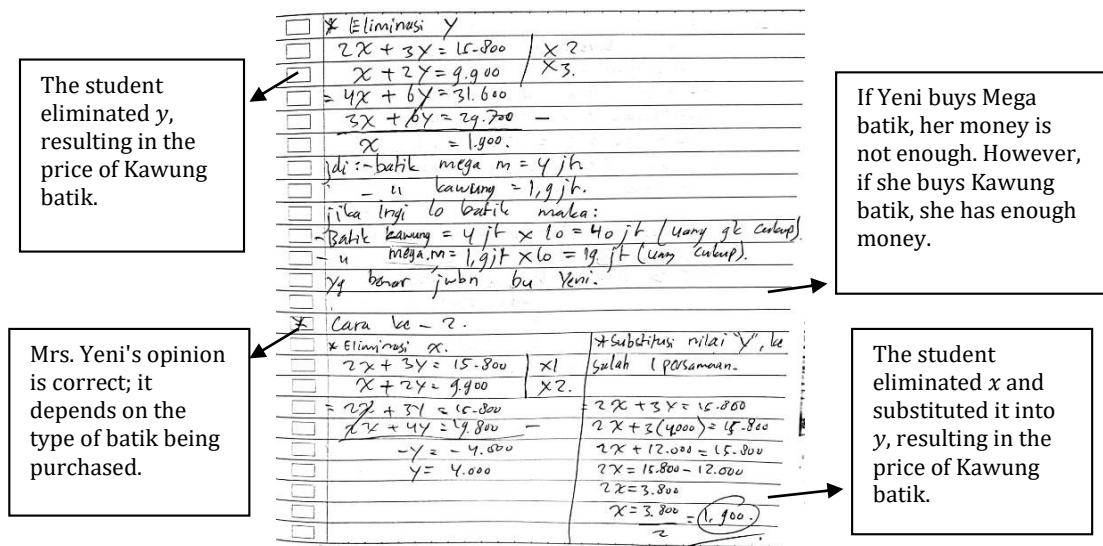 The student
eliminated y,
resulting in the
price of Kawung
batik.
Mrs. Yeni's opinion
is correct; it
depends on the
type of batik being
purchased.
* Eliminasi Y
2X + 3Y = 15.800 | X 2
X + 2Y = 9.900 | X3.
= 4X + 6Y = 31.600
3X + 6Y = 29.700 —
X = 1.900.
jdi : - batik mega m = 4 jt.
- u kawung = 1,9 jt.
jika ingi 10 batik maka :
- Batik kawung = 4 jt X 10 = 40 jt (uang gk cukup)
- u mega.m = 1,9 jt X 10 = 19 jt (uang cukup).
yg benar jwbn bu Yeni.
* Cara ke - 2.
* Eliminasi x.
2X + 3Y = 15.800 | X1
X + 2Y = 9.900 | X2.
= 2X + 3Y = 15.800
2X + 4Y = 19.800 —
-Y = - 4.000
Y = 4.000
* Substitusi nilai "Y", ke
salah 1 persamaan.
= 2X + 3Y = 15.800
2X + 3(4.000) = 15.800
2X + 12.000 = 15.800
2X = 15.800 - 12.000
2X = 3.800
X = 3.800 = 1.900.
2
If Yeni buys Mega
batik, her money is
not enough. However,
if she buys Kawung
batik, she has enough
money.
The student
eliminated x and
substituted it into
y, resulting in the
price of Kawung
batik.